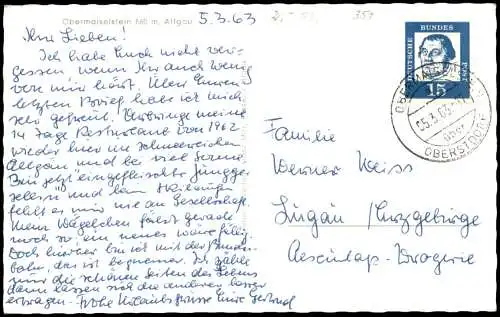 Obermaiselstein 860 m, Allgäu
5.3.63
Ihr Lieben!
Ich habe Euch nicht ver-
gessen, wenn Ihr auch wenig
von mir hört. Über Euren
letzten Brief habe ich mich
sehr gefreut. Verbringe meine
14 Tage Resturlaub von 1962
wieder hier im schneereichen
Allgäu und bei viel Sonne.
Bin jetzt eingefleischte Jungge-
sellin und dem
fehlt es mir nie an Gesellschaft.
Mein Wägelchen fährt gerade
noch so, ein neues wäre fällig.
Doch hierher bin ich mit der Bundes-
bahn, das ist bequemer. Ich zähle
nur die schönen Seiten des Lebens
dann lassen sich die anderen besser
ertragen. Frohe Urlaubsgrüsse Eure Gertrud
DEUTSCHE BUNDES POST
15
05.3.63
über
OBERSTDORF
Familie
Werner Weiss
Lugau / Erzgebirge
Aesculap-Drogerie